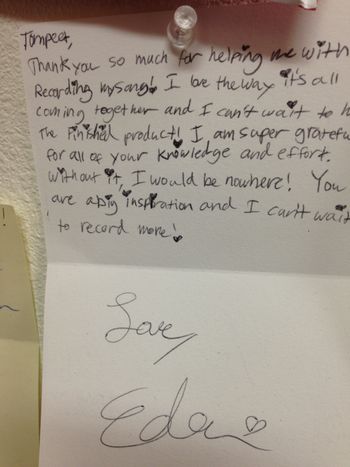 Tompeet,
Thank you so much for helping me with
Recording my song! I love the way it's all
coming together and I can't wait to
The finished product! I am super grateful
for all of your knowledge and effort.
Without it, I would be nowhere! You
are a big inspiration and I can't wait
to record more!
Love,
Eden